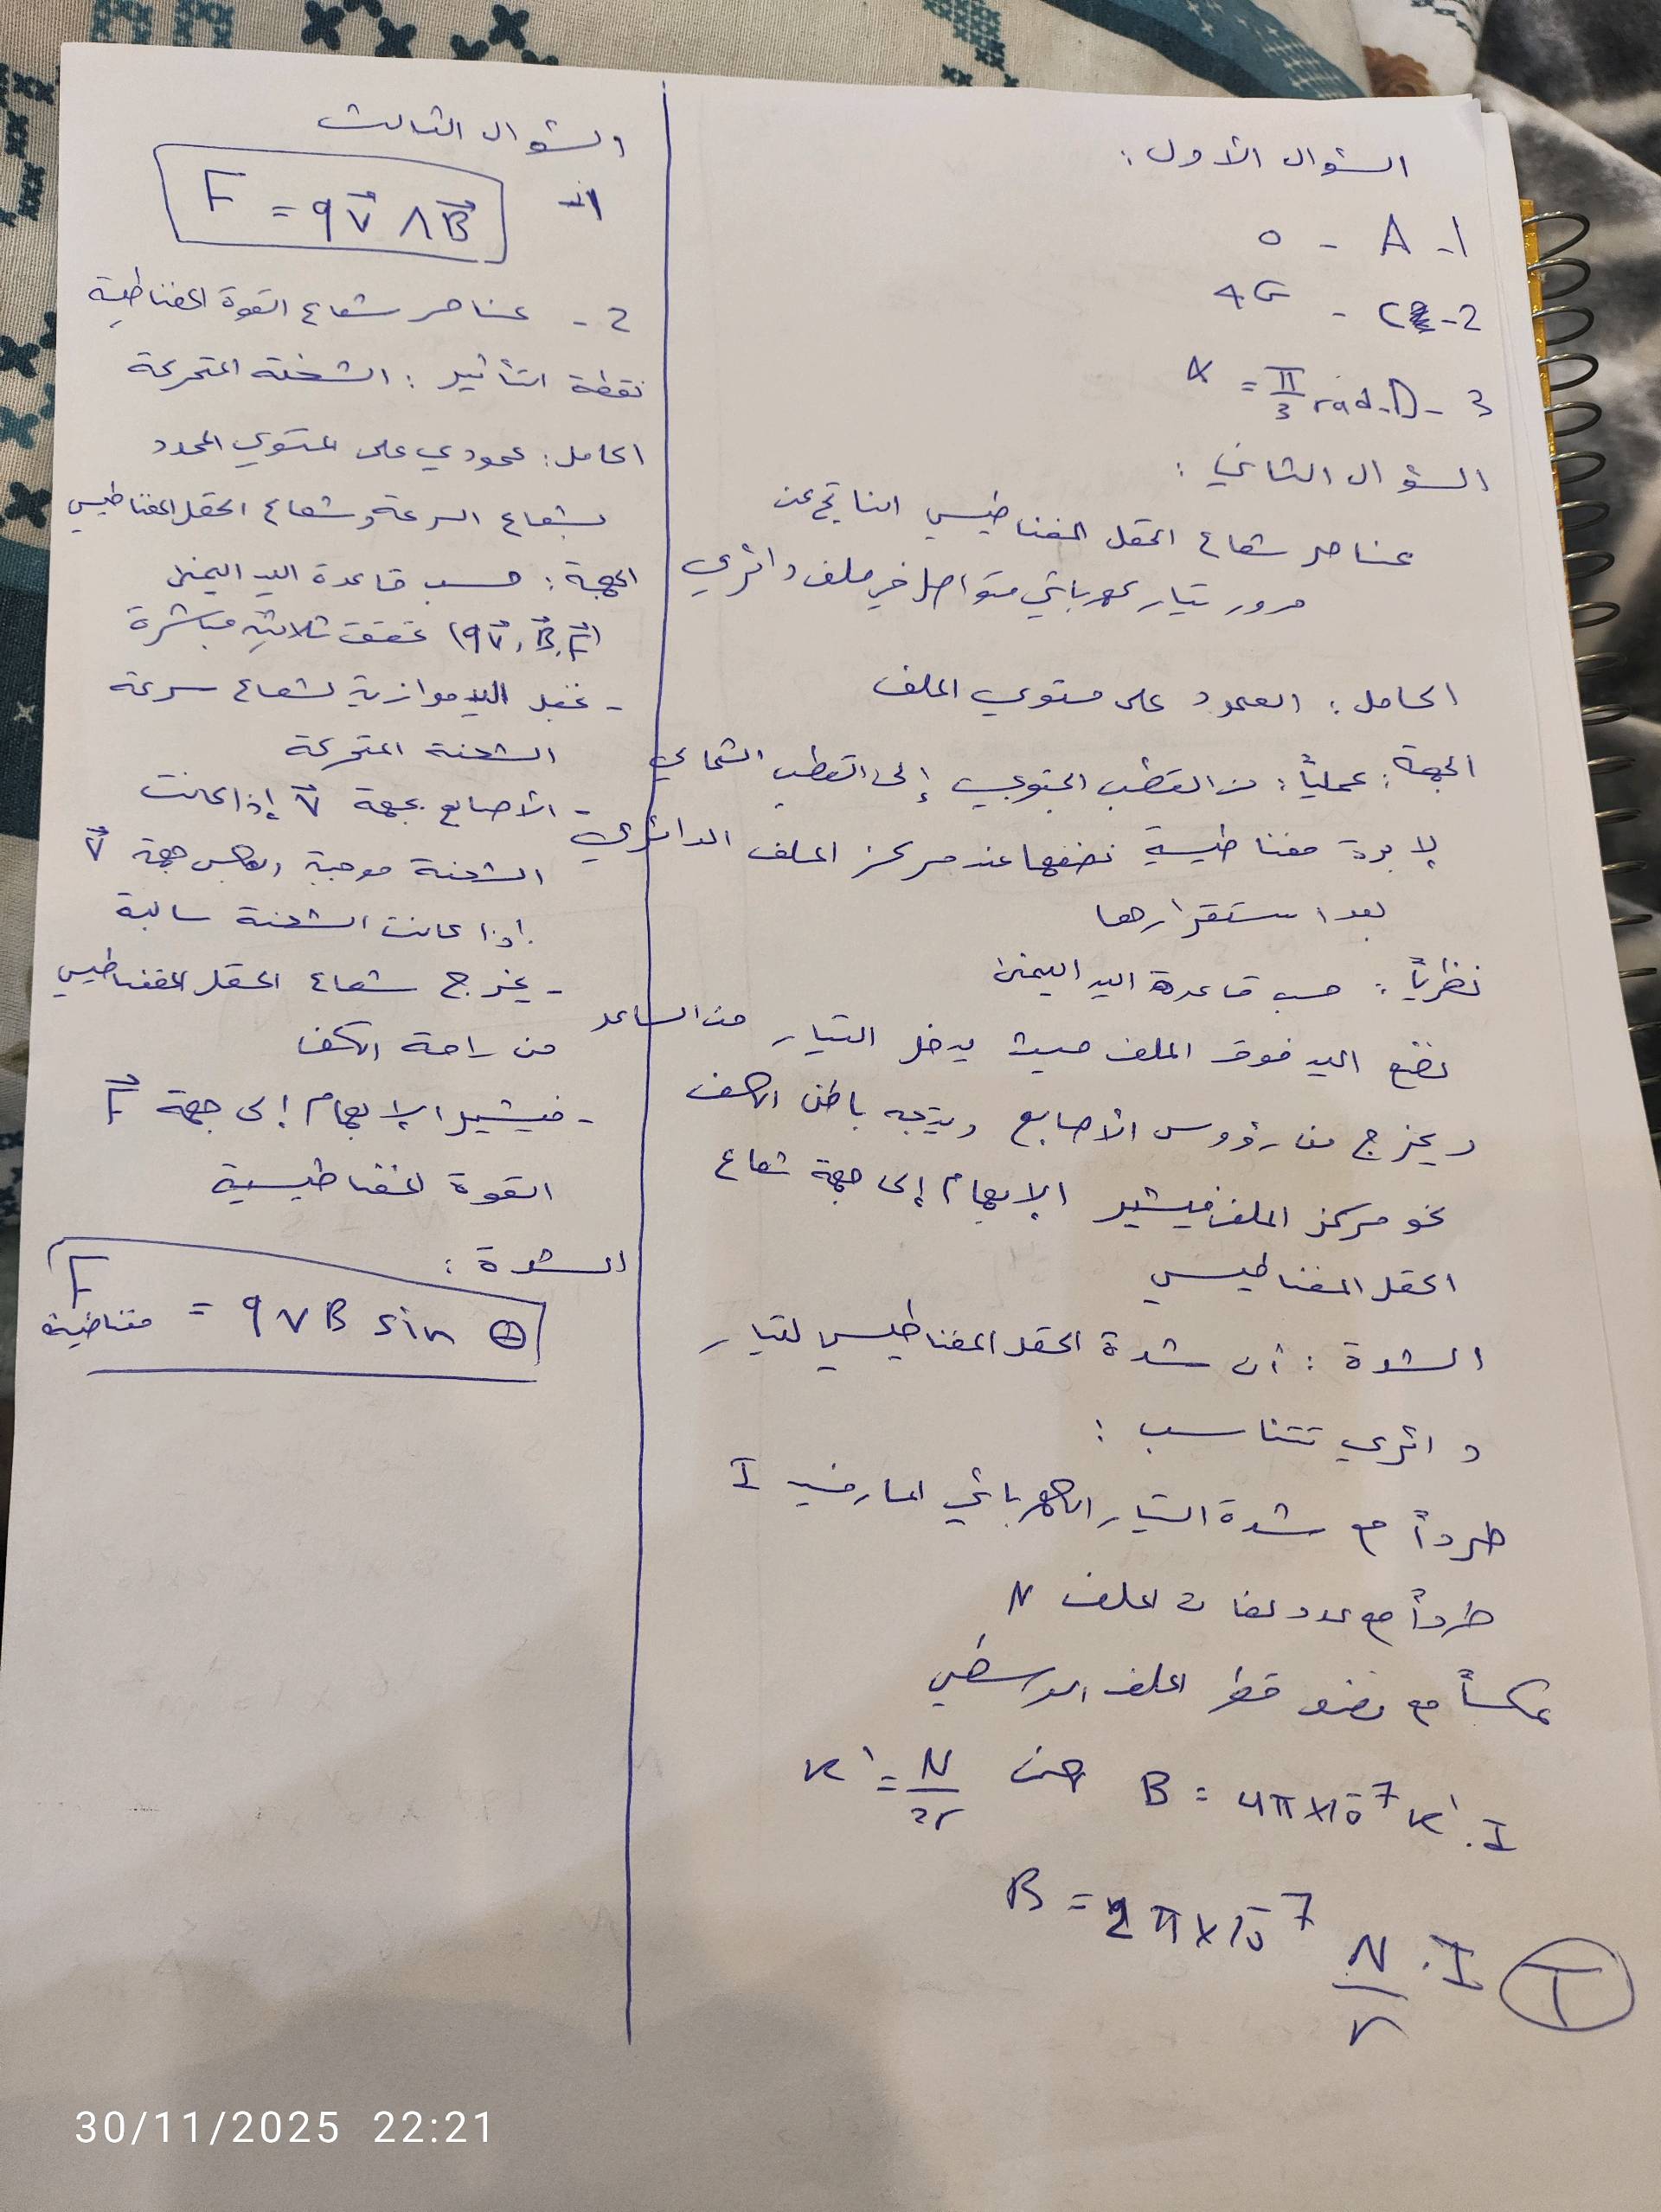 السؤال الأول:
1- A - 0
2- C - 4G
3 - D - α = π/3 rad
السؤال الثاني:
عناصر شعاع الحقل المغناطيسي الناتج عن
مرور تيار كهربائي متواصل في ملف دائري
الحامل: العمود على مستوي الملف
الجهة: عملياً: من القطب الجنوبي إلى القطب الشمالي
لإبرة مغناطيسية نضعها عند مركز الملف الدائري
بعد استقرارها
نظرياً: حسب قاعدة اليد اليمنى
نضع اليد فوق الملف حيث يدخل التيار من الساعد
ويخرج من رؤوس الأصابع ويتجه باطن الكف
نحو مركز الملف فيشير الإبهام إلى جهة شعاع
الحقل المغناطيسي
الشدة: أن شدة الحقل المغناطيسي لتيار
دائري تتناسب:
طرداً مع شدة التيار الكهربائي المار فيه I
طرداً مع عدد لفات الملف N
عكساً مع نصف قطر الملف الوسطي
B = 4π×10⁻⁷ K' . I حيث K' = N/2r
B = 2π×10⁻⁷ N/r . I T
السؤال الثالث
1- F = qv⃗ Λ B⃗
2- عناصر شعاع القوة المغناطيسية
نقطة التأثير: الشحنة المتحركة
الحامل: عمودي على المستوي المحدد
بشعاع السرعة وشعاع الحقل المغناطيسي
الجهة: حسب قاعدة اليد اليمنى
(qv⃗, B⃗, F⃗) تحقق ثلاثية مباشرة
- نجعل اليد موازية لشعاع سرعة
الشحنة المتحركة
- الأصابع بجهة v⃗ إذا كانت
الشحنة موجبة وبعكس جهة v⃗
إذا كانت الشحنة سالبة
- يخرج شعاع الحقل المغناطيسي
من راحة الكف
- فيشير الإبهام إلى جهة F⃗
القوة المغناطيسية
الشدة:
F مغناطيسية = qvB sin θ
30/11/2025 22:21